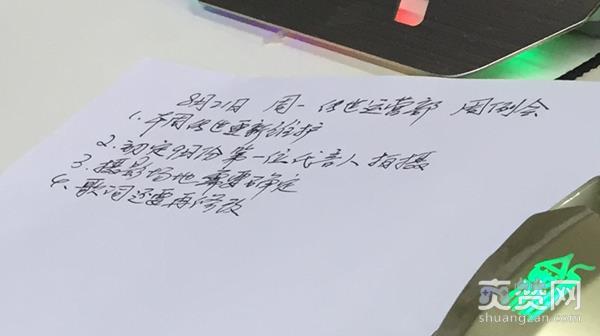 8月21日 周一 传世运营部 周例会
1. 下周传世更新维护
2. 初定9月份第一位代言人拍摄
3. 摄影场地需要确定
4. 歌词还要再修改
爽赞网
shuangzan.com